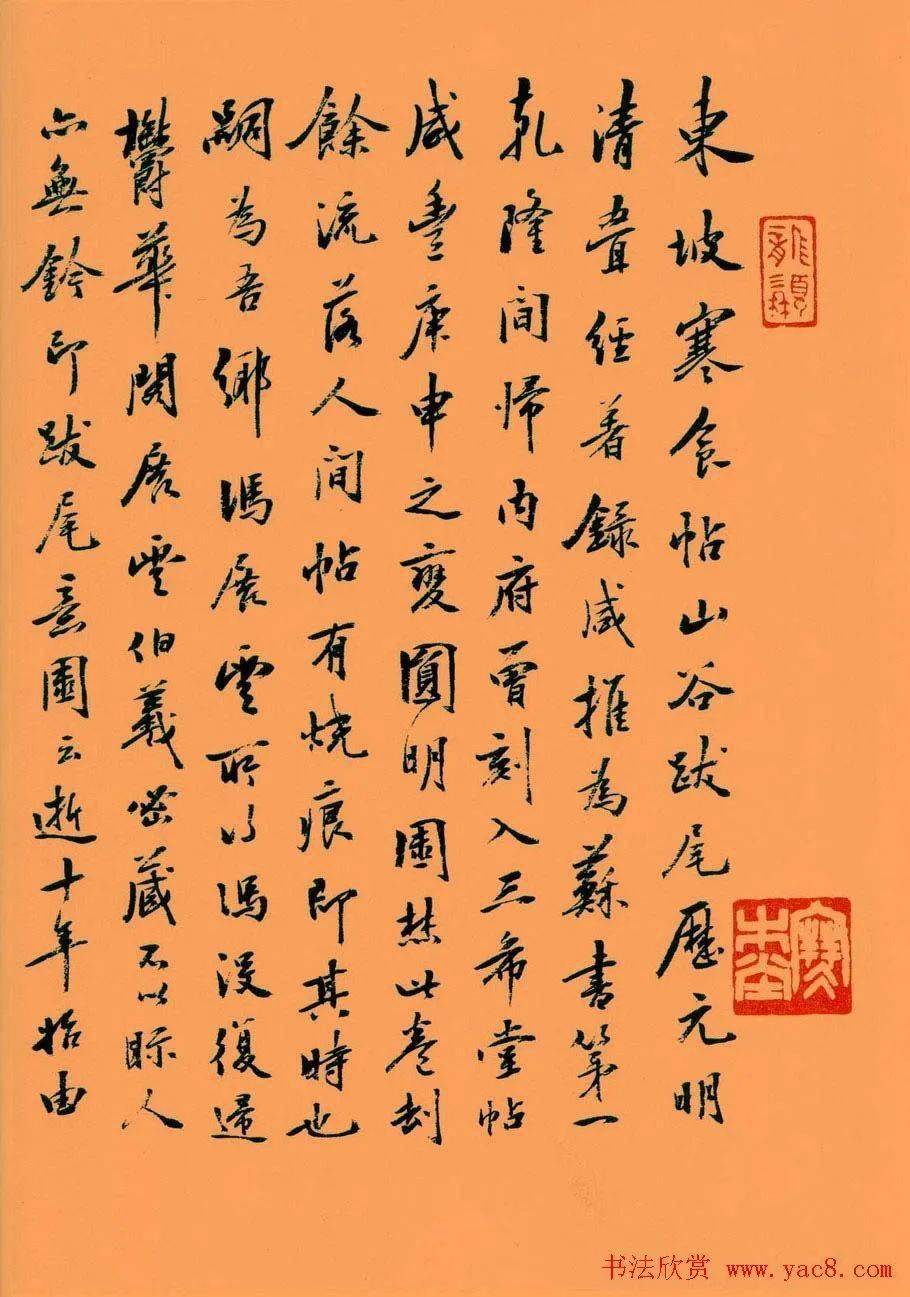 東坡寒食帖山谷跋尾歷元明
清疊經著錄咸推為蘇書第一
乾隆間歸內府曾刻入三希堂帖
咸豐庚申之變圓明園焚此卷刦
餘流落人間帖有燒痕即其時也
嗣為吾鄉馮展雲所得馮沒復歸
鬱華閣展雲伯羲密藏不以眎人
亦無鈐印跋尾意園云逝十年始由
书法欣赏 www.yac8.com